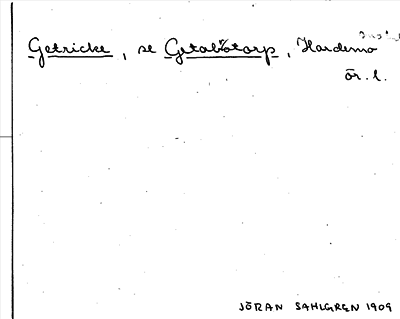 Getricke, se Getabotorp, Hardemo
ör. l.
JÖRAN SAHLGREN 1909